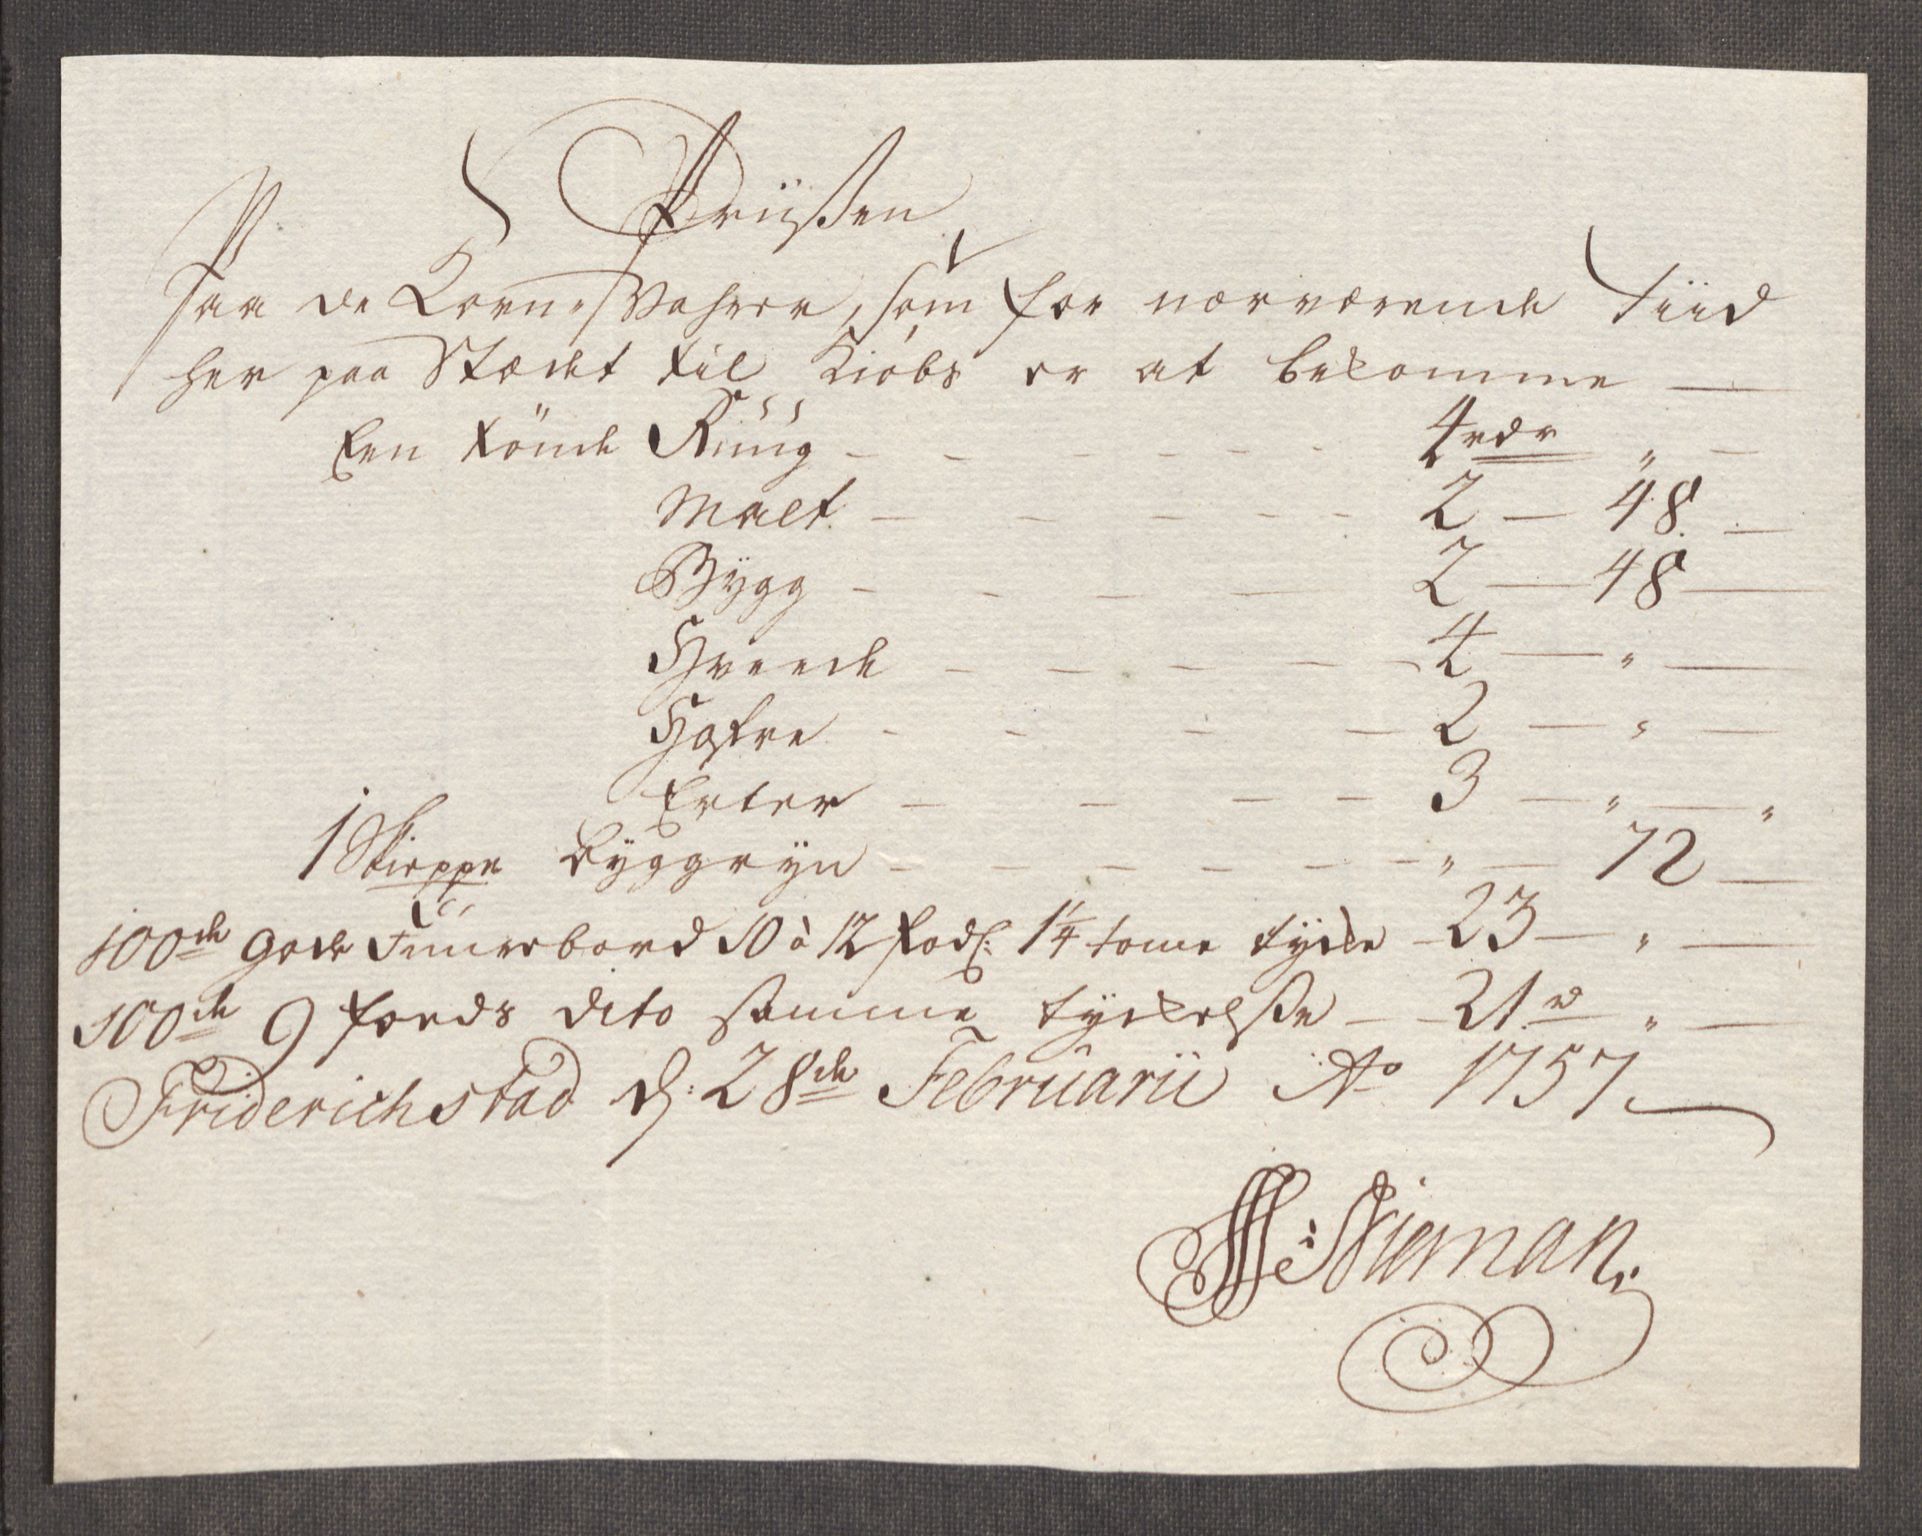 Priißen
Paa de Korn-Vahrer, som for nærværende Tiid
her paa Stædet til Kiøbs er at bekomme —
Een tönde Rüüg - - - - - 4 rdr " —
Malt - - - - - 2 — 48 —
Bÿgg - - - - 2 — 48 —
Hveede - - - - - 4 — " —
Hafre - - - - 2 — " —
Erter - - - - 3 — " — "
1 Skieppe byggryn - - - - - " — 72 —
100de gode Furrebord 10 à 12 fod: 1 1/4 tome tycke - 23 — " —
100de 9 foeds dito samme tyckelsße - 21 rd " —
Friderichstad d: 28de Februarii Ao 1757
Nieman